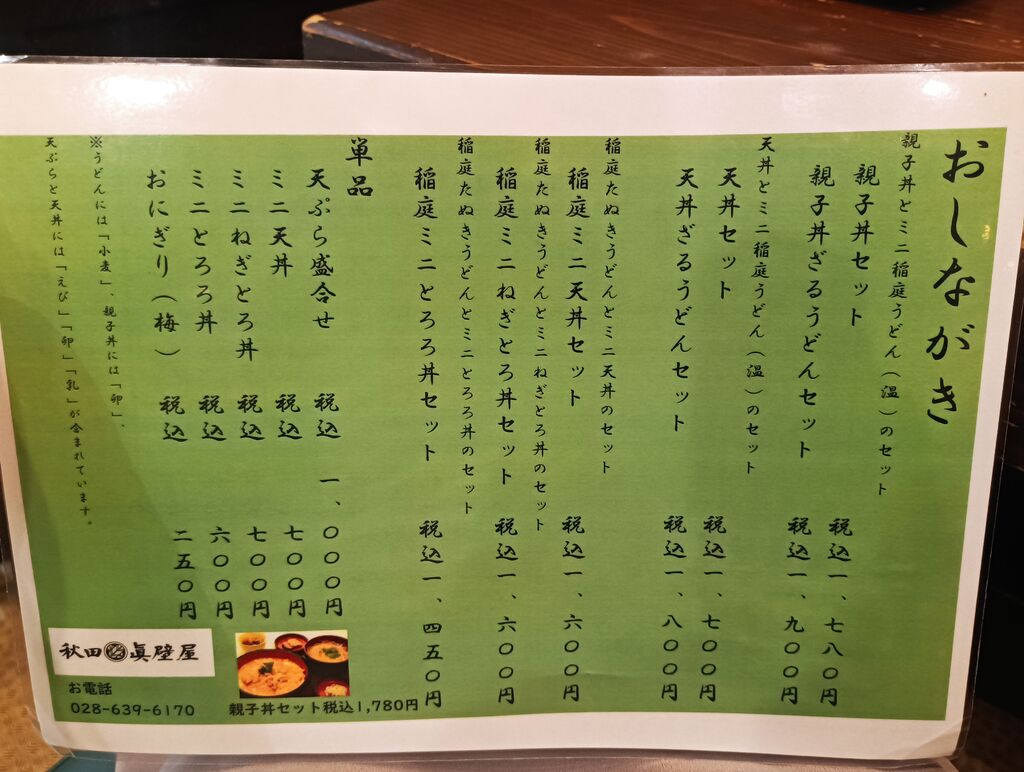 おしながき
親子丼とミニ稲庭うどん（温）のセット
親子丼セット 税込一、七八〇円
親子丼ざるうどんセット 税込一、九〇〇円
天丼とミニ稲庭うどん（温）のセット
天丼セット 税込一、七〇〇円
天丼ざるうどんセット 税込一、八〇〇円
稲庭たぬきうどんとミニ天丼のセット
稲庭ミニ天丼セット 税込一、六〇〇円
稲庭たぬきうどんとミニねぎとろ丼のセット
稲庭ミニねぎとろ丼セット 税込一、六〇〇円
稲庭たぬきうどんとミニとろろ丼のセット
稲庭ミニとろろ丼セット 税込一、四五〇円
単品
天ぷら盛合せ 税込 一、〇〇〇円
ミニ天丼 税込 七〇〇円
ミニねぎとろ丼 税込 七〇〇円
ミニとろろ丼 税込 六〇〇円
おにぎり（梅） 税込 二五〇円
※うどんには「小麦」、親子丼には「卵」、
天ぷらと天丼には「えび」「卵」「乳」が含まれています。
秋田 眞壁屋
お電話
028-639-6170
親子丼セット税込1,780円